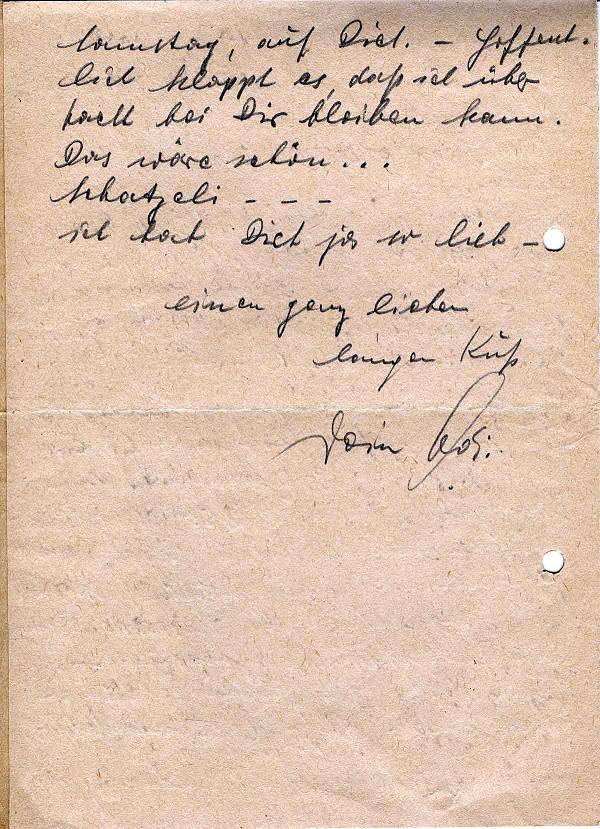 Samstag, auf Dich. – Hoffent-
lich klappt es, daß ich über
nacht bei Dir bleiben kann.
Das wäre schön...
Schatzeli – – –
ich hab Dich ja so lieb –
einen ganz lieben
langen Kuß
Dein